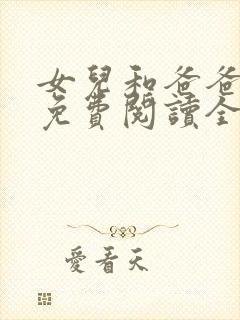 女兒和爸爸
免費閱讀全
愛看天